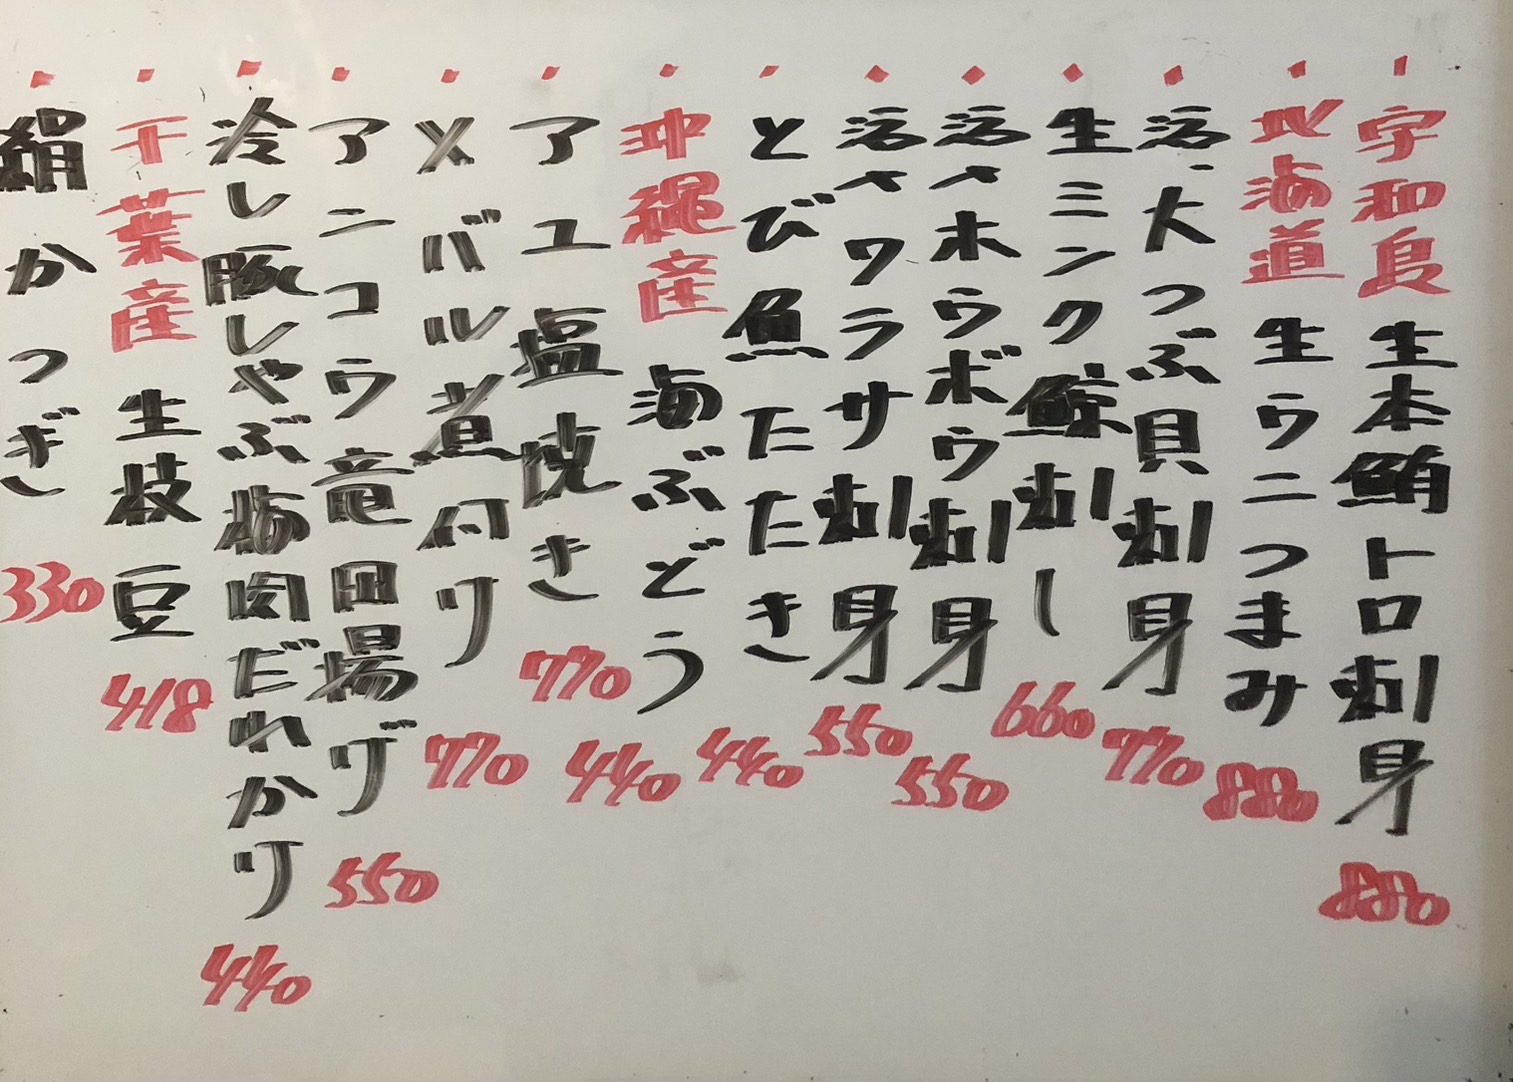 宇和島 生本鮪トロ刺身 880
北海道 生ウニつまみ 880
活・大つぶ貝刺身 770
生ミンク鯨刺し 660
活〆ホウボウ刺身 550
活〆ワラサ刺身 550
とび魚たたき 440
沖縄産 海ぶどう 440
アユ塩焼き 770
メバル煮付け 770
アンコウ竜田揚げ 550
冷し豚しゃぶ梅肉だれかけ 440
千葉産 生枝豆 418
絹かつぎ 330